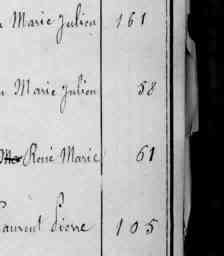 Marie Julien 161
Marie Julien 58
René Marie 61
Laurent Pierre 105